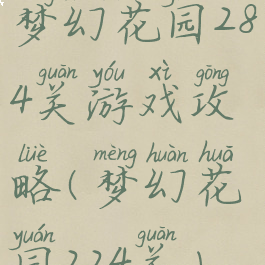 梦幻花园28
guān yóu xì gōng
4关游戏攻
lüè mèng huàn huā
略(梦幻花
yuán guān
园224关)